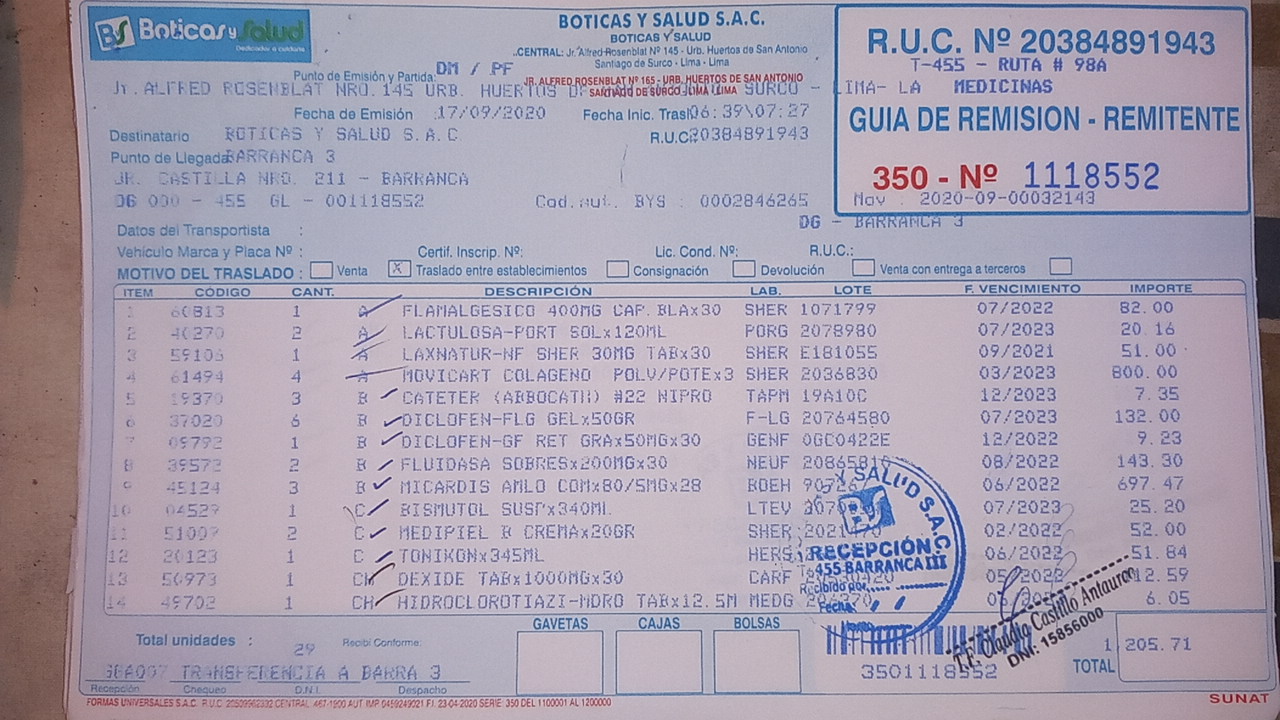 BS Boticas y Salud
Dedicados a cuidarte
BOTICAS Y SALUD S.A.C.
BOTICAS Y SALUD
CENTRAL: Jr. Alfred Rosenblat Nº 145 - Urb. Huertos de San Antonio
Santiago de Surco - Lima - Lima
JR. ALFRED ROSENBLAT Nº 165 - URB. HUERTOS DE SAN ANTONIO
SANTIAGO DE SURCO - LIMA LIMA
R.U.C. Nº 20384891943
T-455 - RUTA # 98A
MEDICINAS
GUIA DE REMISION - REMITENTE
350 - Nº 1118552
Mov : 2020-09-00032143
DG - BARRANCA 3
Punto de Emisión y Partida: DM / PF
Jr. ALFRED ROSENBLAT NRO. 145 URB. HUERTOS SURCO - LIMA- LA
Fecha de Emisión : 17/09/2020 Fecha Inic. Trasl 06:39\07:27
Destinatario BOTICAS Y SALUD S.A.C. R.U.C. 20384891943
Punto de Llegada BARRANCA 3
JR. CASTILLA NRO. 211 - BARRANCA
DG 000 - 455 GL - 001118552 Cod.aut. BYS : 0002846265
Datos del Transportista :
Vehículo Marca y Placa Nº : Certif. Inscrip. Nº: Lic. Cond. Nº: R.U.C.:
MOTIVO DEL TRASLADO : Venta X Traslado entre establecimientos Consignación Devolución Venta con entrega a terceros
ITEM CÓDIGO CANT. DESCRIPCIÓN LAB. LOTE F. VENCIMIENTO IMPORTE
1 60813 1 A FLAMALGESICO 400MG CAP.BLAx30 SHER 1071799 07/2022 82.00
2 40270 2 A LACTULOSA-PORT SOLx120ML PORG 2078980 07/2023 20.16
3 59106 1 A LAXNATUR-NF SHER 30MG TABx30 SHER E181055 09/2021 51.00
4 61494 4 A MOVICART COLAGENO POLV/POTEx3 SHER 2036830 03/2023 800.00
5 19370 3 B CATETER (ABBOCATH) #22 NIPRO TAPM 19A10C 12/2023 7.35
6 37020 6 B DICLOFEN-FLG GELx50GR F-LG 20764580 07/2023 132.00
7 09792 1 B DICLOFEN-GF RET GRAx50MGx30 GENF 0GC0422E 12/2022 9.23
8 39573 2 B FLUIDASA SOBRESx200MGx30 NEUF 08/2022 143.30
9 45124 3 B MICARDIS AMLO COMx80/5MGx28 BOEH 06/2022 697.47
10 04529 1 C BISMUTOL SUSPx340ML LTEV 07/2023 25.20
11 51009 2 C MEDIPIEL B CREMAx20GR SHER 02/2022 52.00
12 20123 1 C TONIKONx345ML HERS 06/2022 51.84
13 50973 1 CH DEXIDE TABx1000MGx30 CARF 12.59
14 49702 1 CH HIDROCLOROTIAZI-MDRO TABx12.5M MEDG 6.05
Y SALUD S.A.C.
RECEPCIÓN
455 BARRANCA III
Recibido por:
Fecha: / /
T.F. Claudia Castillo Antaurco
DNI: 15856000
Total unidades : 29 Recibí Conforme: GAVETAS CAJAS BOLSAS
3501118552
TOTAL 1,205.71
TRANSFERENCIA A BARRA 3
Recepción Chequeo D.N.I. Despacho
FORMAS UNIVERSALES S.A.C. R.U.C 20509962332 CENTRAL: 467-1900 AUT IMP 0459249021 F.I. 23-04-2020 SERIE 350 DEL 1100001 AL 1200000
SUNAT